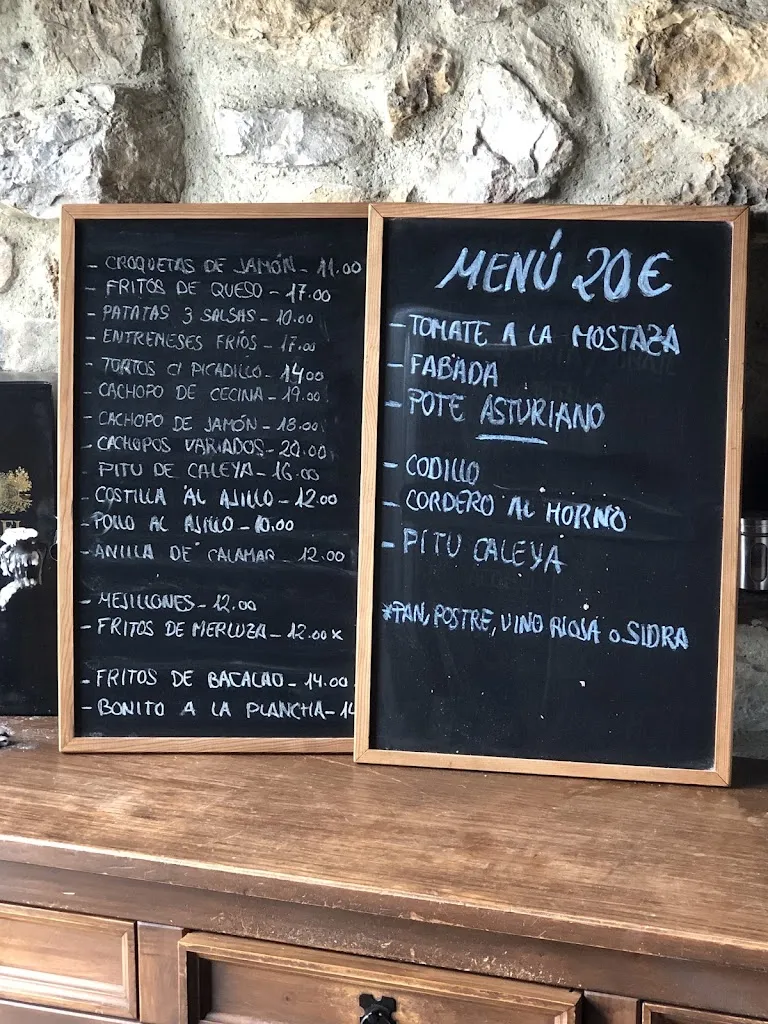 - CROQUETAS DE JAMÓN - 11.00
- FRITOS DE QUESO - 17.00
- PATATAS 3 SALSAS - 10.00
- ENTREMESES FRÍOS - 17.00
- TORTOS C/ PICADILLO - 14.00
- CACHOPO DE CECINA - 19.00
- CACHOPO DE JAMÓN - 18.00
- CACHOPOS VARIADOS - 20.00
- PITU DE CALEYA - 16.00
- COSTILLA AL AJILLO - 12.00
- POLLO AL AJILLO - 10.00
- ANILLA DE CALAMAR - 12.00
- MEJILLONES - 12.00
- FRITOS DE MERLUZA - 12.00 x
- FRITOS DE BACALAO - 14.00
- BONITO A LA PLANCHA - 14
MENÚ 20€
- TOMATE A LA MOSTAZA
- FABADA
- POTE ASTURIANO
- CODILLO
- CORDERO AL HORNO
- PITU CALEYA
*PAN, POSTRE, VINO RIOJA o SIDRA